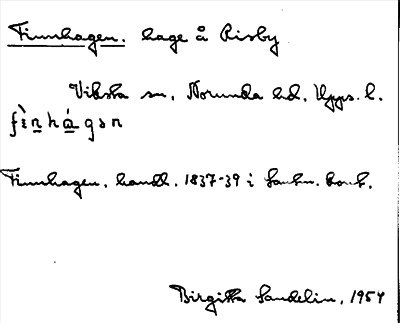 Finnhagen. hage å Risby
Viksta sn, Norunda hd, Upps. l.
fìnhágən
Finnhagen, handl. 1837-39 i Lantm. kont.
Birgitta Sandelin, 1954